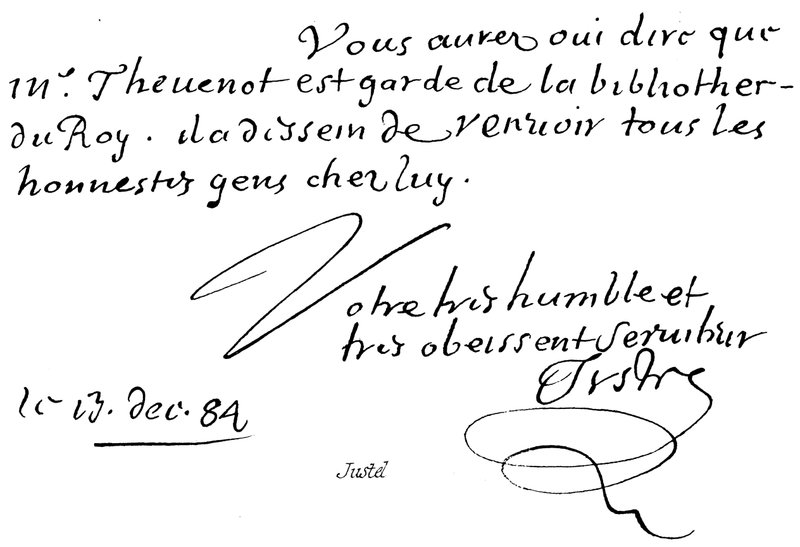 Vous aurez oui dire que
mr. Thevenot est garde de la bibliother-
du Roy. il a dissein de renvoir tous les
honnestes gens chez luy.
Votre tres humble et
tres obeissent serviteur
Justel
le 13. dec. 84
Justel